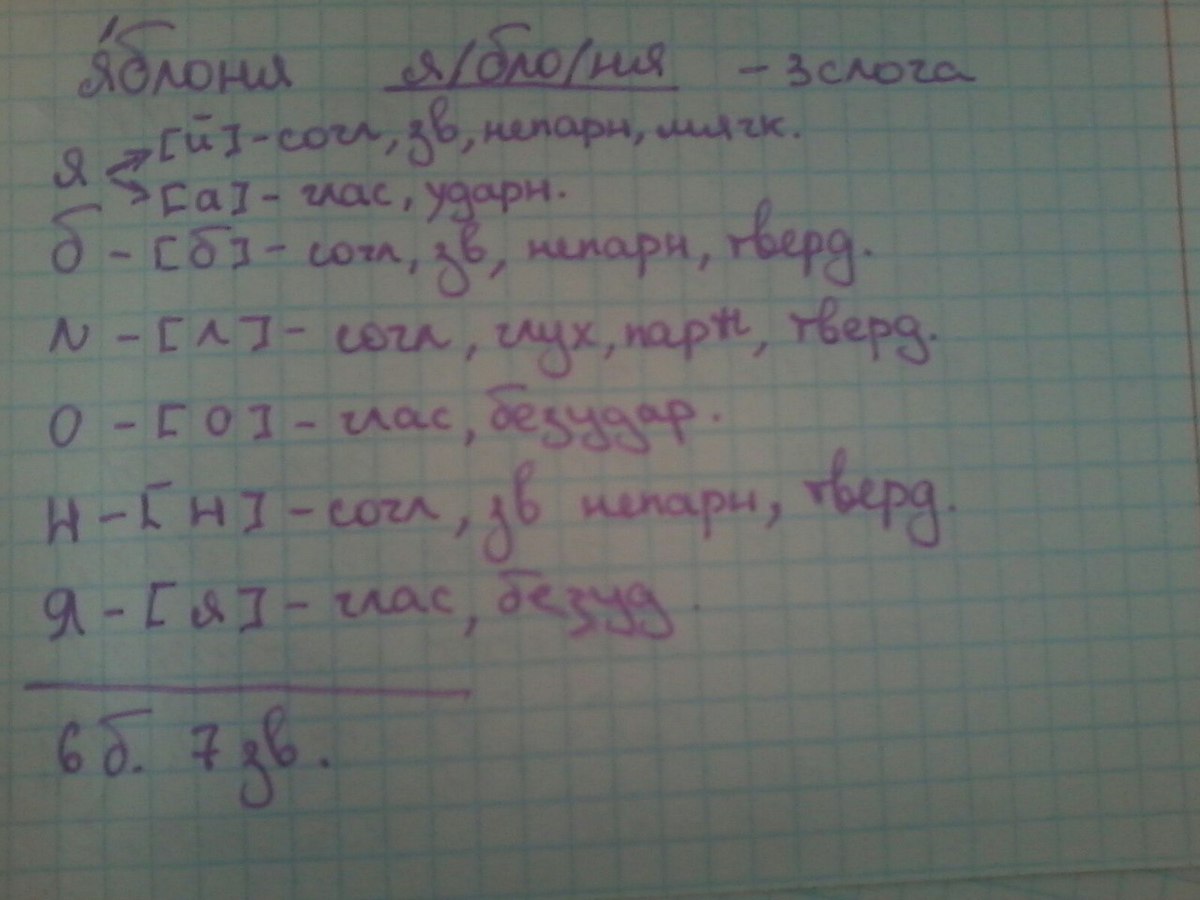 я́блоня я/бло/ня - 3 слога
я [й] - согл, зв, непарн, мягк.
[а] - глас, ударн.
б - [б] - согл, зв, непарн, тверд.
л - [л] - согл, глух, парн, тверд.
о - [о] - глас, безудар.
н - [н] - согл, зв непарн, тверд.
я - [я] - глас, безуд.
6 б. 7 зв.